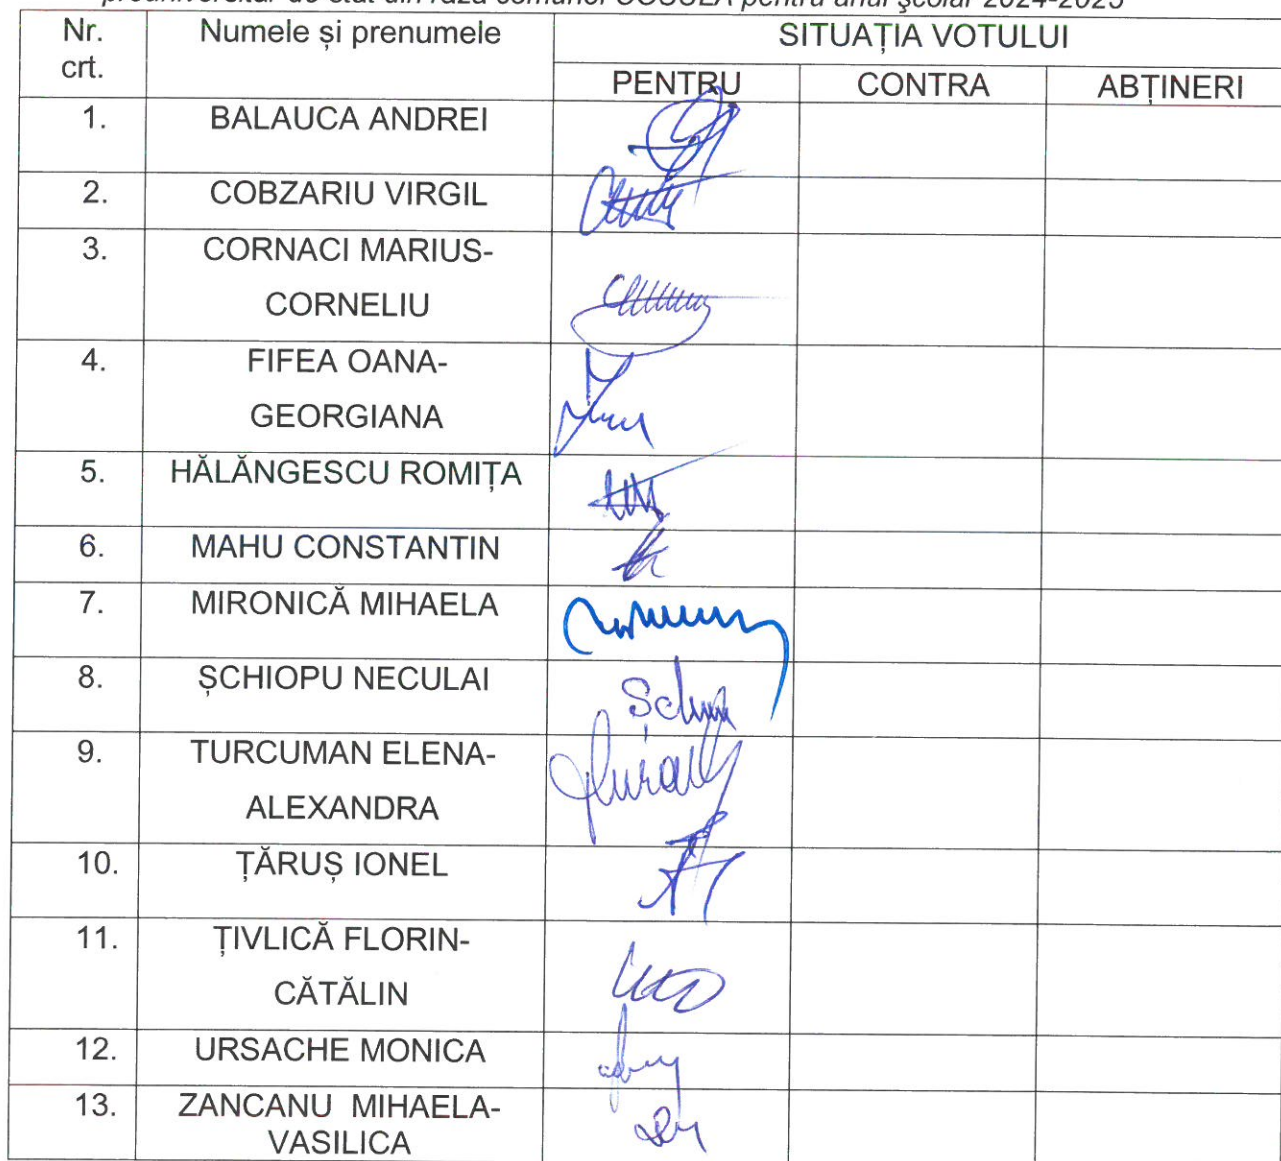 preuniversitar de stat din raza comunei COȘULA pentru anul şcolar 2024-2025
Nr. crt. Numele și prenumele SITUAȚIA VOTULUI
PENTRU CONTRA ABȚINERI
1. BALAUCA ANDREI
2. COBZARIU VIRGIL
3. CORNACI MARIUS-
CORNELIU
4. FIFEA OANA-
GEORGIANA
5. HĂLĂNGESCU ROMIȚA
6. MAHU CONSTANTIN
7. MIRONICĂ MIHAELA
8. ȘCHIOPU NECULAI
9. TURCUMAN ELENA-
ALEXANDRA
10. ȚĂRUȘ IONEL
11. ȚIVLICĂ FLORIN-
CĂTĂLIN
12. URSACHE MONICA
13. ZANCANU MIHAELA-
VASILICA